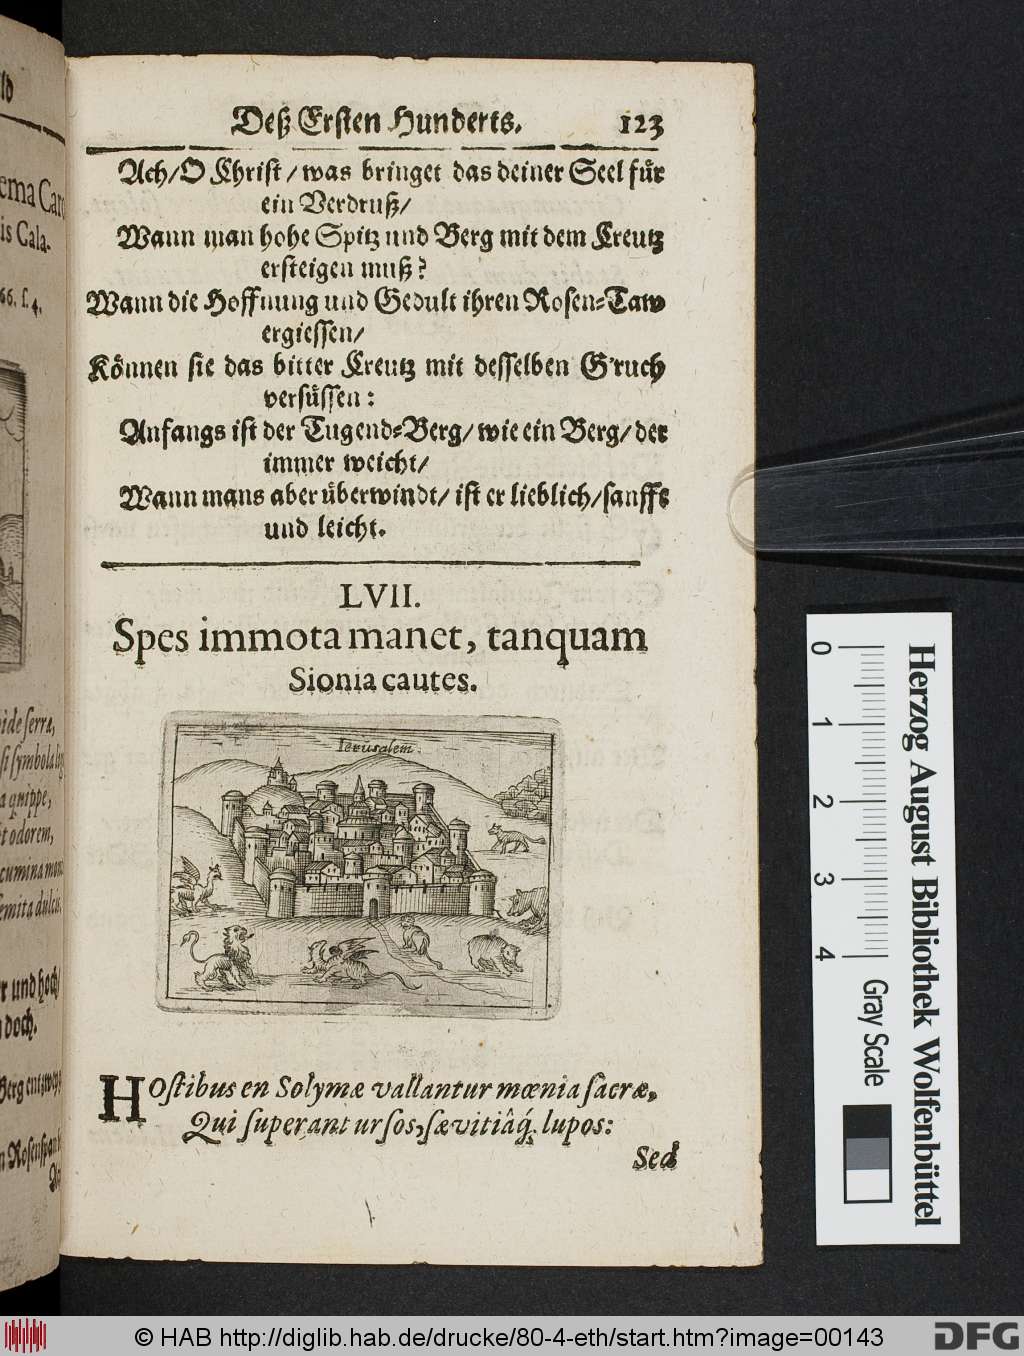 Deß Ersten Hunderts. 123
Ach/ O Christ / was bringet das deiner Seel für
ein Verdruß/
Wann man hohe Spitz und Berg mit dem Creutz
ersteigen muß?
Wann die Hoffnung und Gedult ihren Rosen=Taw
ergiessen/
Können sie das bitter Creutz mit desselben G'ruch
versüssen:
Anfangs ist der Tugend=Berg/ wie ein Berg/ der
immer weicht/
Wann mans aber überwindt/ ist er lieblich/ sanfft
und leicht.
LVII.
Spes immota manet, tanquam
Sionia cautes.
Ierusalem.
HOstibus en Solymæ vallantur mœnia sacræ,
Qui superant ursos, sævitiâq́; lupos:
Sed
ema Caro
is Cala.
66. f. 4.
ide serræ,
a quippe,
et odorem,
cumina mon
semita dulcis.
r und hoch/
doch.
Herzog August Bibliothek Wolfenbüttel
Gray Scale
0 1 2 3 4
© HAB http://diglib.hab.de/drucke/80-4-eth/start.htm?image=00143
DFG